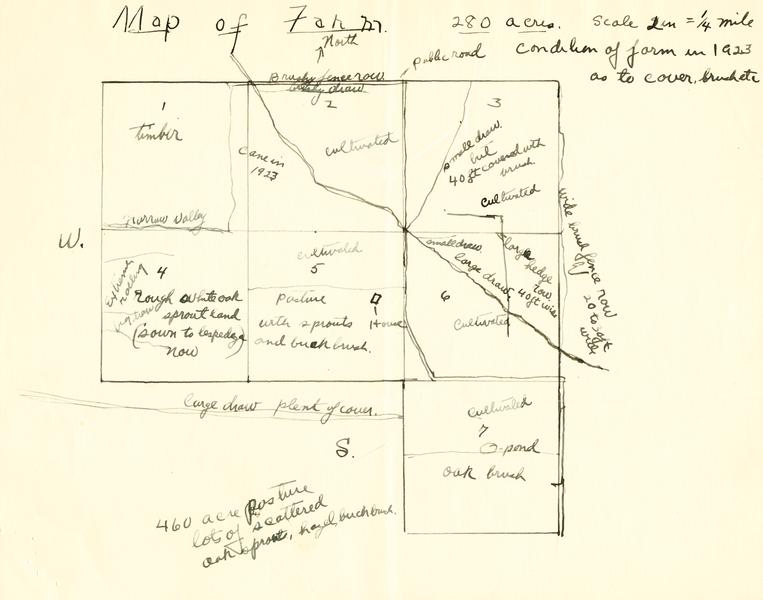 Map of Farm.
280 acres. Scale 2 in = 1/4 mile
Condition of farm in 1923
as to cover, brush etc
North
public road
Brushy fence row
brushy draw
1
timber
2
cultivated
Cane in
1923
3
small draw
but
40 ft covered with
brush.
cultivated
Narrow Valley
W.
wide brush fence row
20 to 30 ft
wide
4
Extremely
rolling
Rough white oak
sprout land
(sown to lespedeza
now)
cultivated
5
Pasture
with sprouts
and buck brush.
House
small draw
large draw, 40 ft wide
large hedge
row
6
Cultivated
large draw plent of cover.
S.
cultivated
7
O-pond
oak brush
460 acre pasture
lots of scattered
oak sprouts, hazel, buck brush.